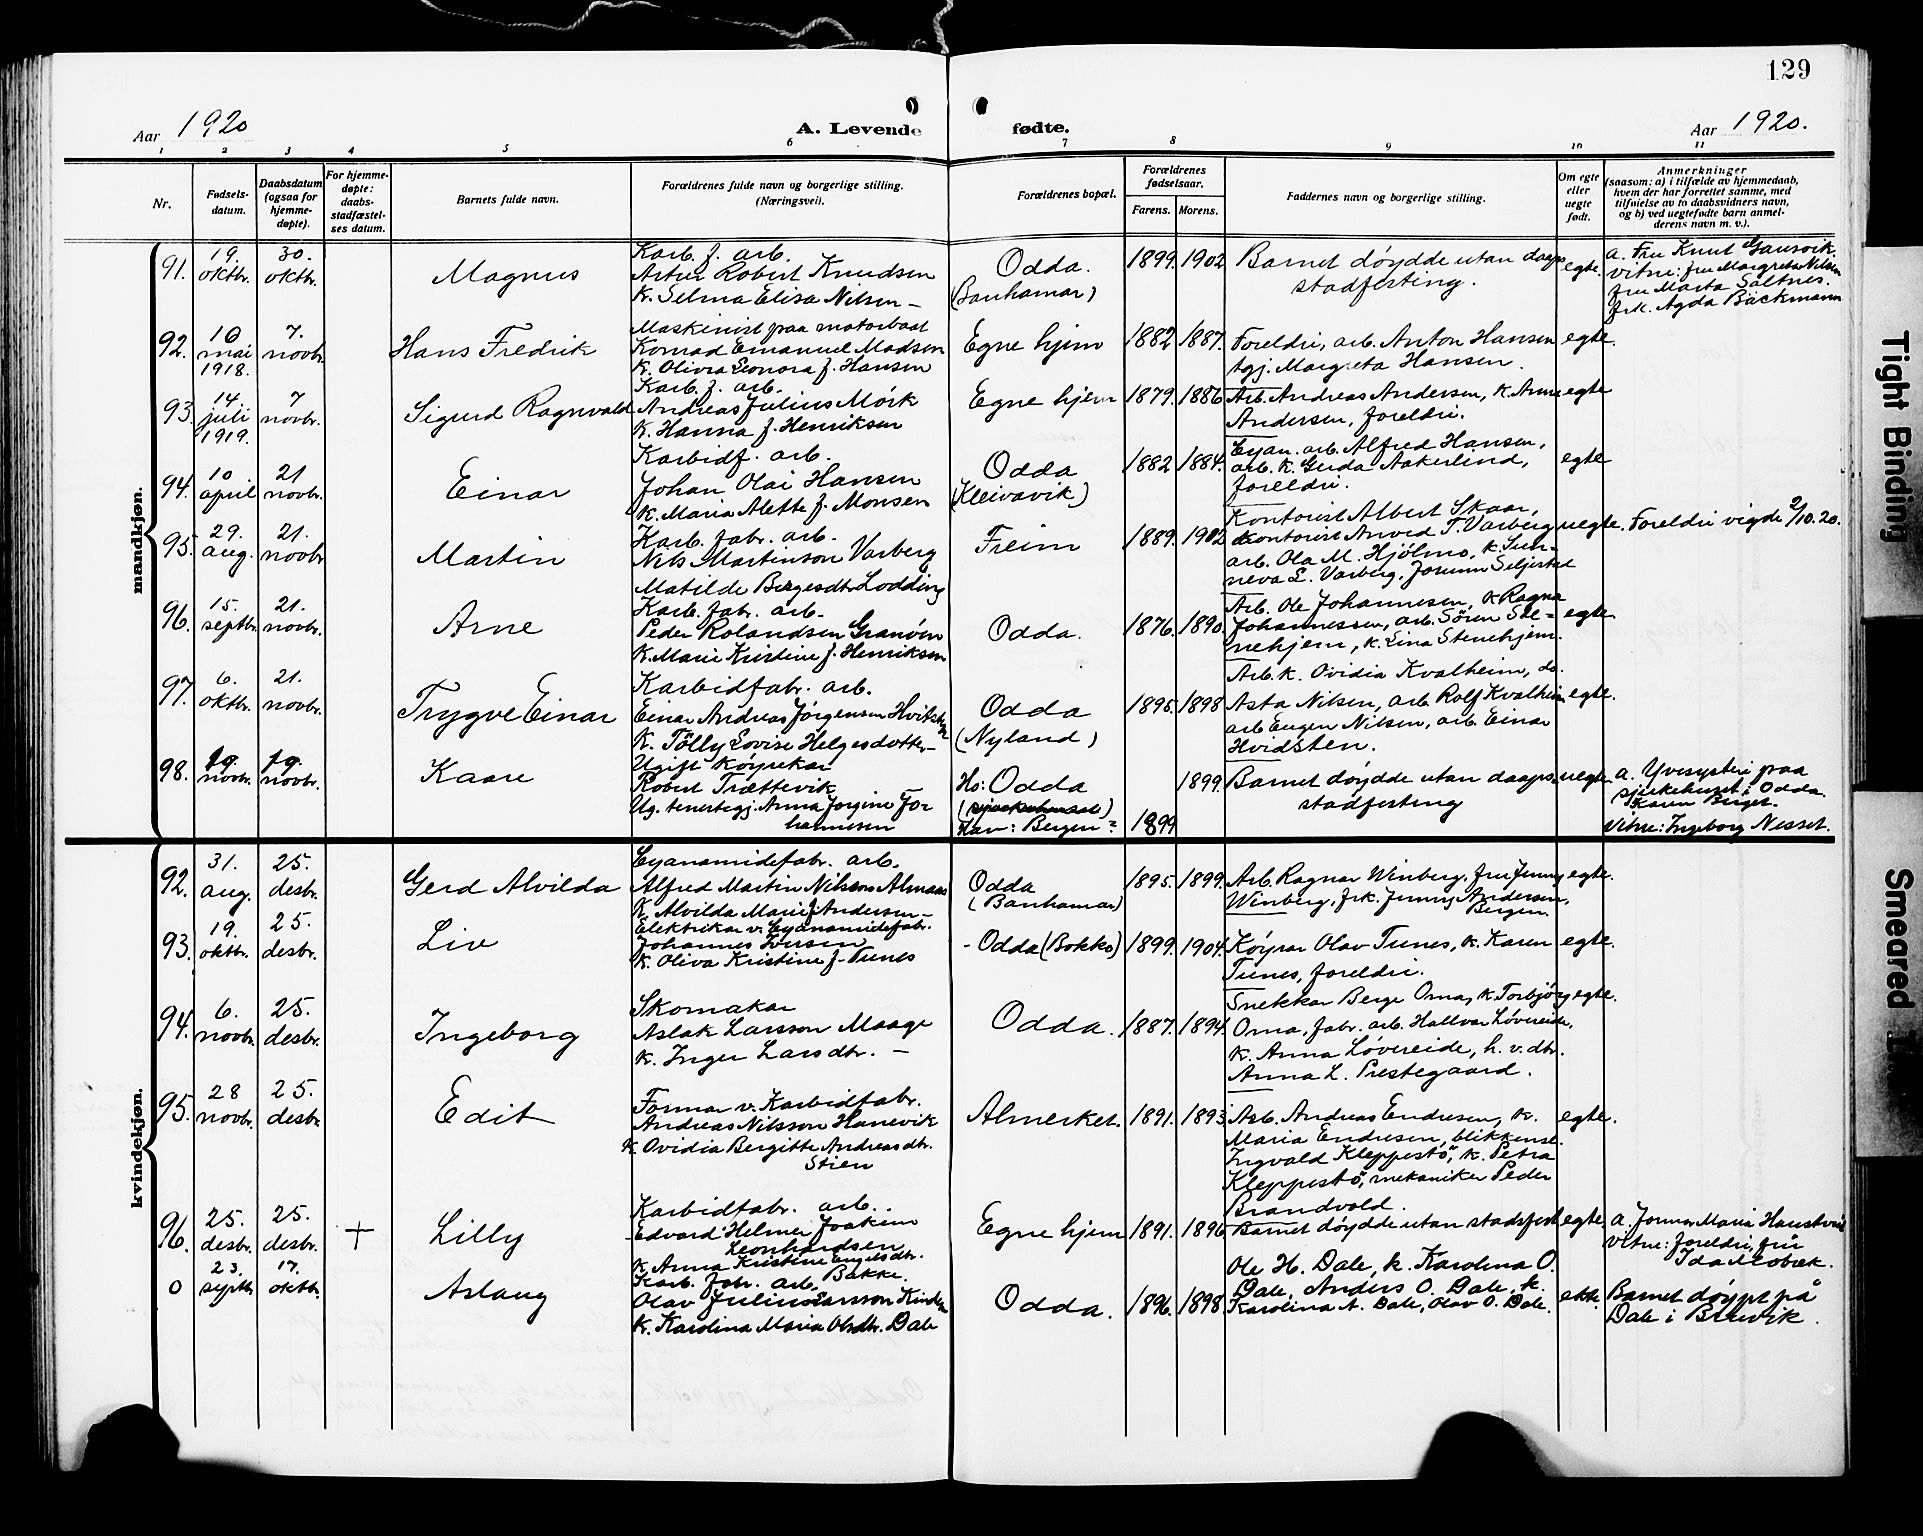 129
Aar 1920
A. Levende fødte.
Aar 1920.
1 2 3 4 5 6 7 8 9 10 11
Nr.
Fødsels-
datum.
Daabsdatum
(ogsaa for
hjemme-
døpte).
For hjemme-
døpte:
daabs-
stadfæstel-
ses datum.
Barnets fulde navn.
Forældrenes fulde navn og borgerlige stilling.
(Næringsvei).
Forældrenes bopæl.
Forældrenes
fødselsaar.
Farens. Morens.
Faddernes navn og borgerlige stilling.
Om egte
eller
uegte
født.
Anmerkninger
(saasom: a) i tilfælde av hjemmedaab,
hvem der har forrettet samme, med
tilføielse av to daabsvidners navn,
og b) ved uegtefødte barn anmel-
derens navn m. v.).
mandkjøn.
91.
19.
oktbr.
30.
oktbr.
Magnus
Karb. f. arb.
Artur Robert Knudsen
k. Selma Elisa Nilsen –
Odda.
(Banhamar)
1899. 1902
Barnet døydde utan daaps
stadfesting.
egte.
a. Fru Knut Gausvik
vitne: fru Margreta Nilsen
fru Marta Saltnes.
frk. Agda Bäckmann
92.
10
mai
1918.
7.
novbr.
Hans Fredrik
Maskinist paa motorbaat
Konrad Emanuel Madsen
k. Olivia Leonora f. Hansen
Egne hjem
1882 1887.
Foreldri, arb. Anton Hansen
tgj. Margreta Hansen.
egte.
93.
14.
juli
1919.
7
novbr.
Sigurd Ragnvald
Karb. f. arb.
Andreas Julius Mörk
k. Hanna f. Henriksen
Egne hjem
1879. 1886
Arb. Andreas Andersen, k. Anna
Andersen, foreldri.
egte
94.
10
april
21
novbr.
Einar
Karbidf. arb.
Johan Olai Hansen
k. Maria Alette f. Monsen
Odda
(Kleivavik)
1882 1884.
Cyan. arb. Alfred Hansen,
arb. k. Gerda Aakerlind,
foreldri.
egte
95.
29.
aug.
21.
novbr
Martin
Karb. fabr. arb.
Nils Martinson Varberg
Matilde Børgesdtr Lodding
Freim
1889. 1902
Kontorist Albert Skaar,
kontorist Anved T. Varberg
arb. Ola M. Hjölmo, k. Sun-
neva L. Varberg, Jorunn Seljestad
uegte.
Foreldri vigde 2/10. 20.
96.
15.
septbr.
21.
novbr.
Arne
Karb. fabr. arb.
Peder Rolandsen Granöien
k. Marie Kristine f. Henriksen
Odda.
1876. 1890.
Arb. Ole Johannesen, k Ragna
Johannessen, arb. Sören Ste-
nehjem, k. Lina Stenehjem.
egte.
97.
6.
oktbr.
21.
novbr.
Trygve Einar
Karbidfabr. arb.
Einar Andreas Jörgensen Hvitsten
k. Tölly Lovise Helgesdotter –
Odda
(Nyland)
1895. 1898
Arb. k. Ovidia Kvalheim, do.
Asta Nilsen, arb Rolf Kvalheim
arb Eugen Nilsen, arb. Einar
Hvidsten.
egte.
98.
19.
novbr.
19.
novbr.
Kaare
Ugift köyrekar
Robert Trættevik
Ug. tenestegj. Anna Jorgine Jo-
hannesen
Ho: Odda
(sjukehuset)
Han: Bergen?
1899
1899.
Barnet döydde utan daaps
stadfesting
uegte
a. Yvesysteri paa
sjukehuset i Odda
Karen Berger.
Vitne: Ingeborg Nesset.
kvindekjøn.
92.
31.
aug.
25.
desbr.
Gerd Alvilda
Cyanamidefabr. arb.
Alfred Martin Nilsson Almaas
k. Alvilda Marie f Andersen –
Odda
(Banhamar)
1895. 1899.
Arb. Ragnar Winberg, fru Jenny
Winberg, frk. Jenny Andersen,
Bergen.
egte.
93.
19.
oktbr.
25.
desbr.
Liv
Elektrikar v. Cyanamidefabr.
Johannes Iversen
k. Oliva Kristine f. Tunes
– Odda (Bokko)
1899. 1904.
Köyrar Olav Tunes, k. Karen
Tunes, foreldri.
egte.
94.
6.
novbr.
25.
desbr.
Ingeborg
Skomakar
Aslak Larsson Maage
k. Inger Larsdtr. –
Odda.
1887. 1894.
Snekkar Berge Oma, k Torbjörg
Oma, fabr. arb. Hallvar Lövereide,
k. Anna Lövereide, h. v. dtr.
Anna L. Prestegaard.
egte.
95.
28
novbr.
25.
desbr.
Edit
Formar v. Karbidfabr.
Andreas Nilsson Hanevik
k Ovidia Bergitte Andreasdtr.
Stien
Almerket.
1891. 1893
Arb. Andreas Endresen, k.
Maria Endresen, blikkensl.
Ingvald Kleppestö, k. Petra
Kleppestö, mekaniker Peder
Brandvold.
egte.
96.
25.
desbr.
25.
desbr.
†
Lilly
Karbidfabr. arb.
Edvard Helmer Joakim
Leonhardsen
k. Anna Kristine Engelsdtr.
Bakke.
Egne hjem
1891. 1896
Barnet döydde utan stadsfest
egte.
a. Jormor Maria
vitne: foreldri, fru
Ida
0
23.
septbr
17.
oktbr.
Aslaug
Karb. fabr. arb.
Olav Julius Larsson Kinden
k. Karolina Maria Olsdtr. Dale
Odda.
1896. 1898
Ole H. Dale, k. Karolina O.
Dale, Anders O. Dale, k.
Karolina A. Dale, Olav O. Dale.
ekte.
Barnet döypt på
Dale i Bruvik.
Tight Binding
Smeared